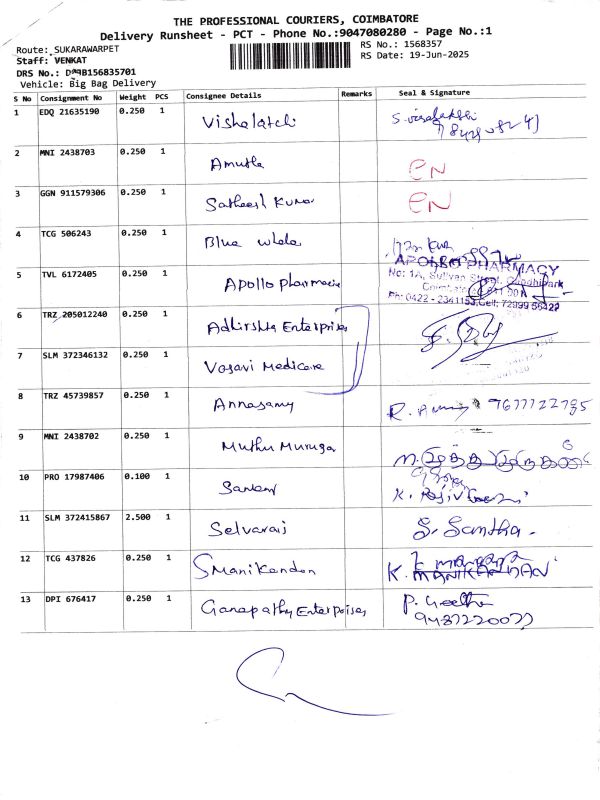 THE PROFESSIONAL COURIERS, COIMBATORE
Delivery Runsheet - PCT - Phone No.:9047080280 - Page No.:1
Route: SUKARAWARPET
RS No.: 1568357
Staff: VENKAT
RS Date: 19-Jun-2025
DRS No.: 156835701
Vehicle: Big Bag Delivery
S No Consignment No Weight PCS Consignee Details Remarks Seal & Signature
1 EDQ 21635190 0.250 1 Vishalatchi
2 MNI 2438703 0.250 1 Amutha EN
3 GGN 911579306 0.250 1 Satheesh Kumar EN
4 TCG 506243 0.250 1 Blue whale
5 TVL 6172405 0.250 1 Apollo Pharmacie APOLLO PHARMACY
No: 1A, Sullivan Street,
Ph: 0422 - 2341153, Cell: 72999
6 TRZ 205012240 0.250 1 Adhirshta Enterprises
7 SLM 372346132 0.250 1 Vasavi Medicare
8 TRZ 45739857 0.250 1 Annasamy R. 9677722785
9 MNI 2438702 0.250 1 Muthu Muruga
10 PRO 17987406 0.100 1 K. Rajiv
11 SLM 372415867 2.500 1 Selvaraj S. Santha.
12 TCG 437826 0.250 1 SManikandan K. MANIKANDAN
13 DPI 676417 0.250 1 Ganapathy Enterprises P. Geetha